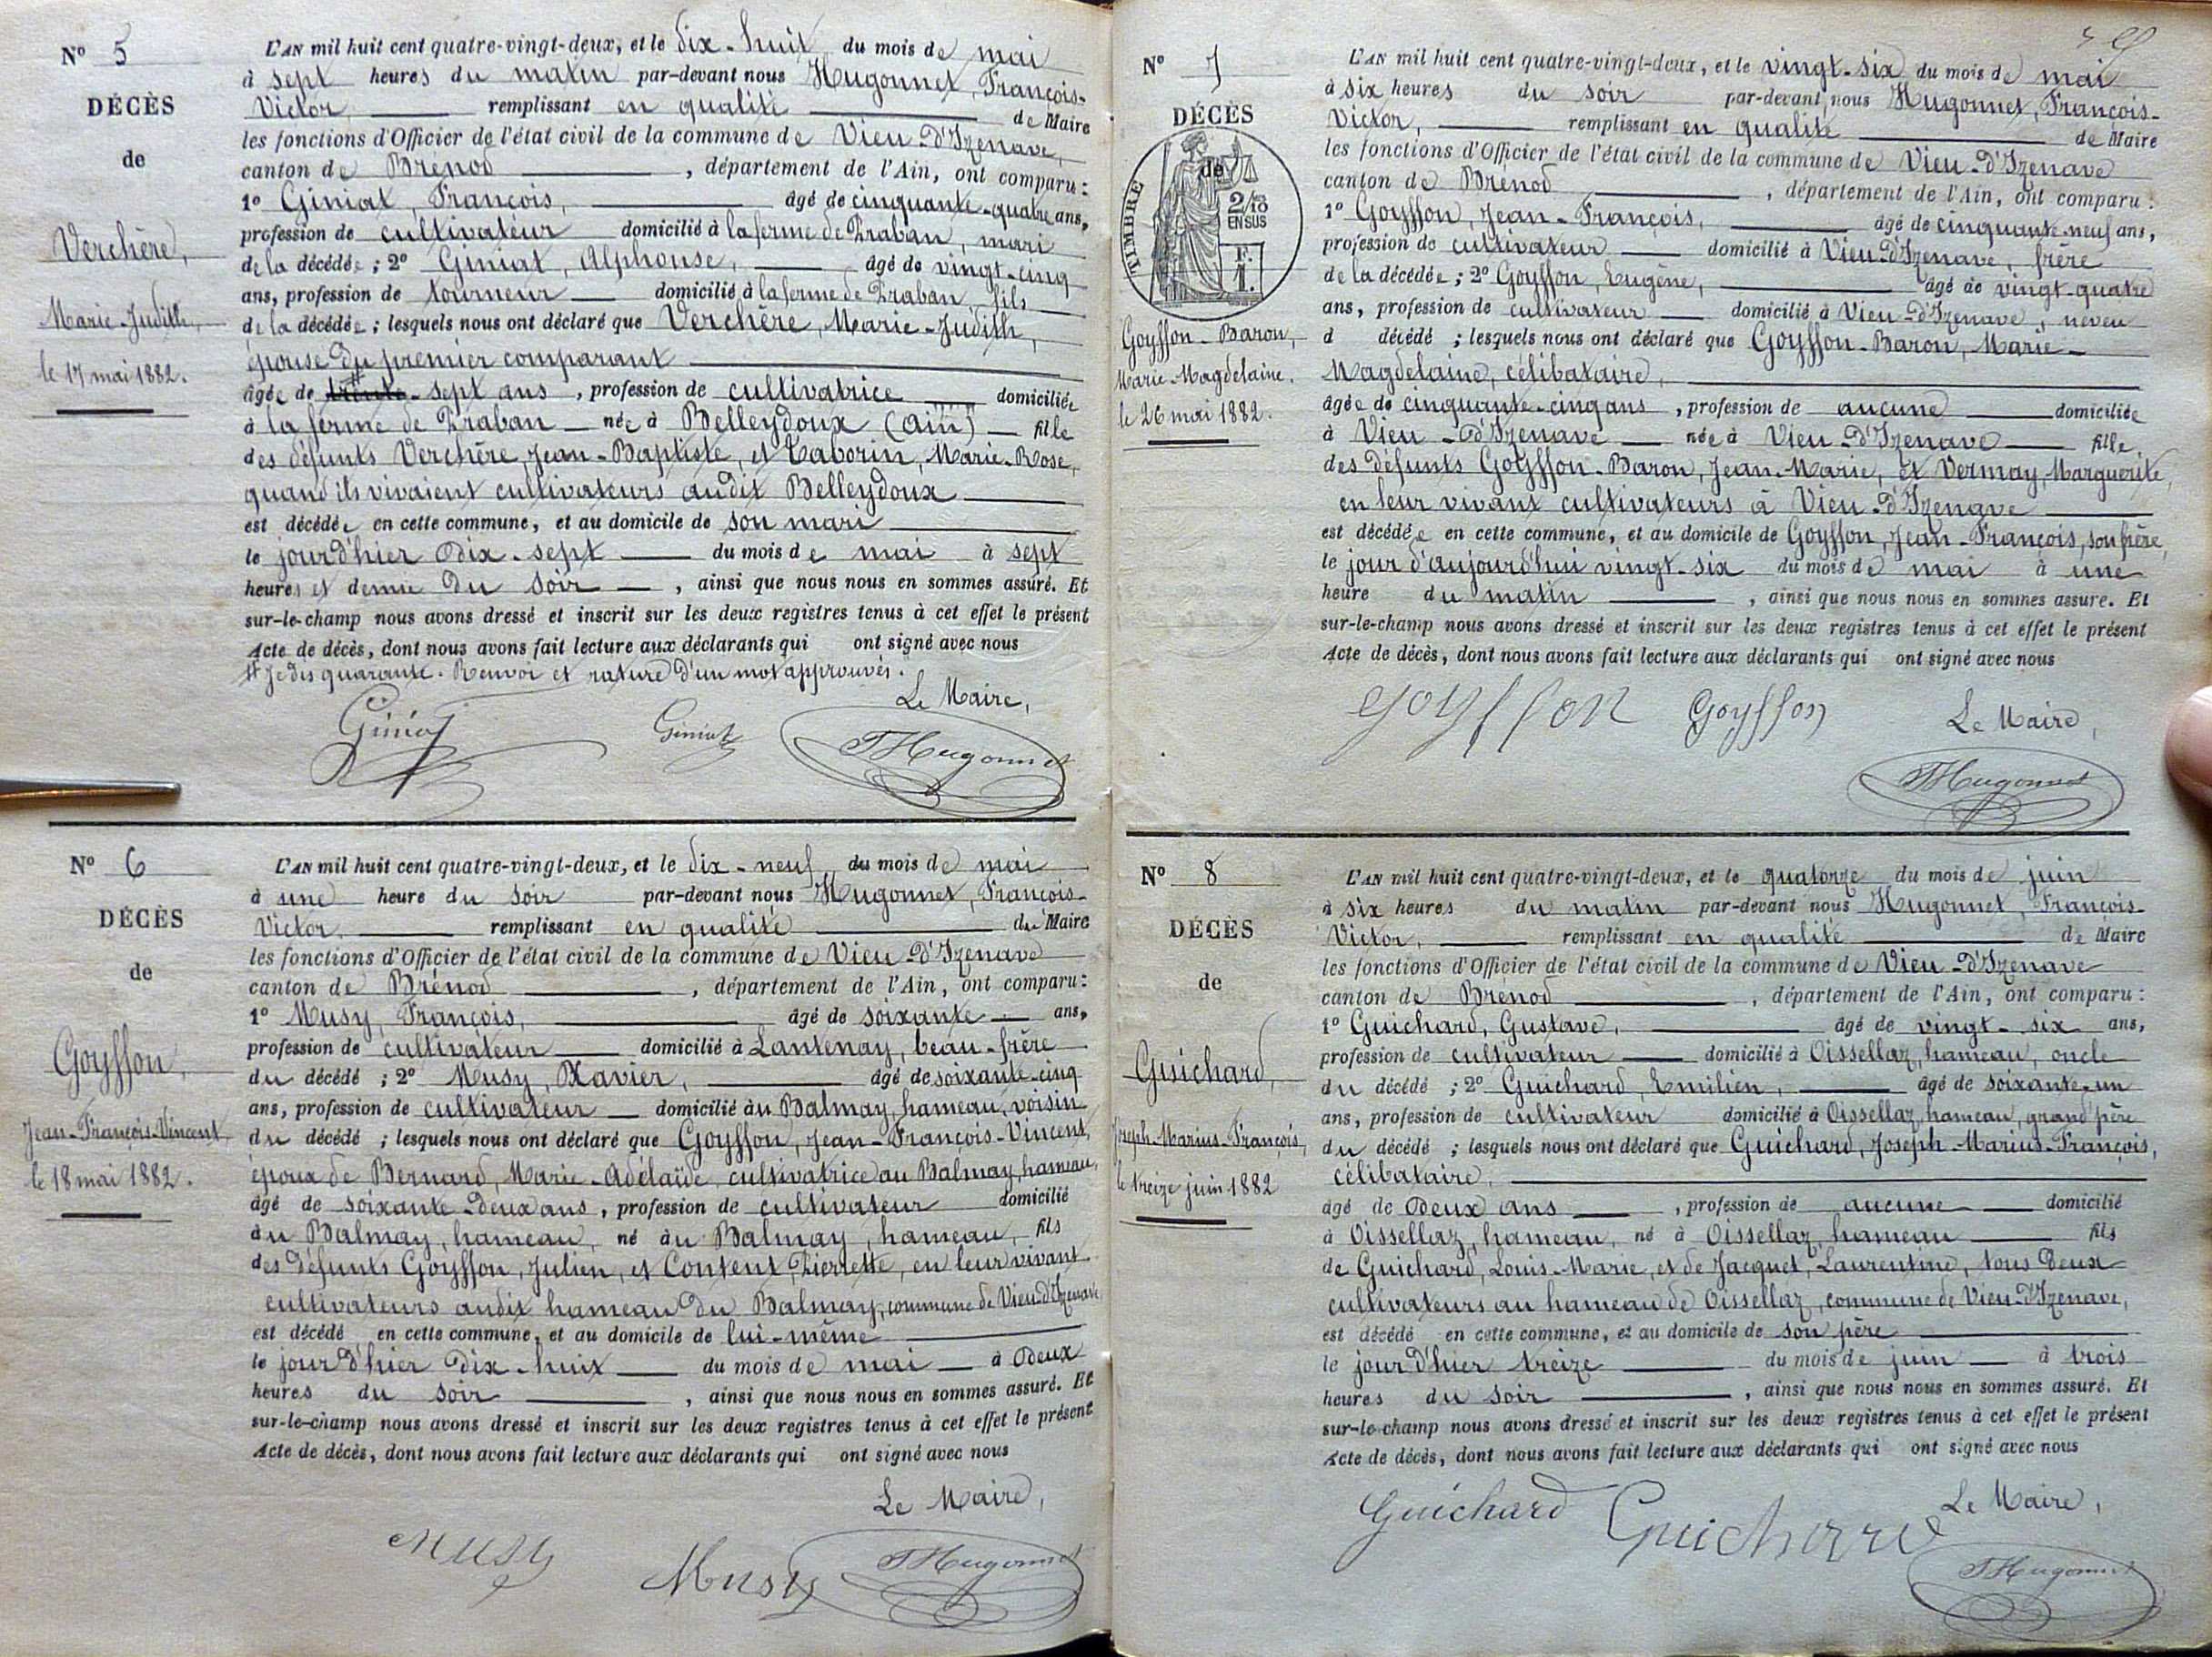 Nº 5
DÉCÈS
de
Verchère,
Marie-Judith,
le 17 mai 1882.
L'AN mil huit cent quatre-vingt-deux, et le dix-huit du mois de mai
à sept heures du matin par-devant nous Hugonnet, François-
Victor, remplissant en qualité de Maire
les fonctions d'Officier de l'état civil de la commune de Vieu-d'Izenave,
canton de Brénod, département de l'Ain, ont comparu:
1º Giniat, François, âgé de cinquante-quatre ans,
profession de cultivateur domicilié à la ferme de Praban, mari
de la décédée; 2º Giniat, Alphonse, âgé de vingt-cinq
ans, profession de tourneur domicilié à la ferme de Praban, fils
de la décédée; lesquels nous ont déclaré que Verchère, Marie-Judith,
épouse du premier comparant
âgée de trente-sept ans, profession de cultivatrice domiciliée
à la ferme de Praban née à Belleydoux (Ain) fille
des défunts Verchère, Jean-Baptiste, et Taborin, Marie-Rose,
quand ils vivaient cultivateurs audit Belleydoux
est décédée en cette commune, et au domicile de son mari
le jour d'hier dix-sept du mois de mai à sept
heures et demie du soir, ainsi que nous nous en sommes assuré. Et
sur-le-champ nous avons dressé et inscrit sur les deux registres tenus à cet effet le présent
Acte de décès, dont nous avons fait lecture aux déclarants qui ont signé avec nous
# Je dis quarante. Renvoi et rature d'un mot approuvés.
Le Maire,
Giniat Giniat FHugonnet
Nº 6
DÉCÈS
de
Goyffon,
Jean-François-Vincent,
le 18 mai 1882.
L'AN mil huit cent quatre-vingt-deux, et le dix-neuf du mois de mai
à une heure du soir par-devant nous Hugonnet, François-
Victor, remplissant en qualité du Maire
les fonctions d'Officier de l'état civil de la commune de Vieu-d'Izenave
canton de Brénod, département de l'Ain, ont comparu:
1º Musy, François, âgé de soixante ans,
profession de cultivateur domicilié à Lantenay, beau-frère
du décédé; 2º Musy, Xavier, âgé de soixante-cinq
ans, profession de cultivateur domicilié au Balmay, hameau, voisin
du décédé; lesquels nous ont déclaré que Goyffon, Jean-François-Vincent,
époux de Bernard, Marie-Adélaïde, cultivatrice au Balmay, hameau,
âgé de soixante-deux ans, profession de cultivateur domicilié
au Balmay, hameau, né au Balmay, hameau, fils
des défunts Goyffon, Julien, et Content, Pierrette, en leur vivant
cultivateurs audit hameau du Balmay, commune de Vieu-d'Izenave
est décédé en cette commune, et au domicile de lui-même
le jour d'hier dix-huit du mois de mai à deux
heures du soir, ainsi que nous nous en sommes assuré. Et
sur-le-champ nous avons dressé et inscrit sur les deux registres tenus à cet effet le présent
Acte de décès, dont nous avons fait lecture aux déclarants qui ont signé avec nous
Le Maire,
Musy Musy FHugonnet
Nº 7
DÉCÈS
de
TIMBRE
2/10
EN SUS
F.
1.
Goyffon-Baron,
Marie-Magdelaine.
le 26 mai 1882.
L'AN mil huit cent quatre-vingt-deux, et le vingt-six du mois de mai
à six heures du soir par-devant nous Hugonnet, François-
Victor, remplissant en qualité de Maire
les fonctions d'Officier de l'état civil de la commune de Vieu-d'Izenave
canton de Brénod, département de l'Ain, ont comparu:
1º Goyffon, Jean-François, âgé de cinquante-neuf ans,
profession de cultivateur domicilié à Vieu-d'Izenave, frère
de la décédée; 2º Goyffon, Eugène, âgé de vingt-quatre
ans, profession de cultivateur domicilié à Vieu-d'Izenave, neveu
d décédé; lesquels nous ont déclaré que Goyffon-Baron, Marie-
Magdelaine, célibataire,
âgée de cinquante-cinq ans, profession de aucune domiciliée
à Vieu-d'Izenave née à Vieu-d'Izenave fille
des défunts Goyffon-Baron, Jean-Marie, et Vermay, Marguerite,
en leur vivant cultivateurs à Vieu-d'Izenave
est décédée en cette commune, et au domicile de Goyffon, Jean-François, son frère,
le jour d'aujourd'hui vingt-six du mois de mai à une
heure du matin, ainsi que nous nous en sommes assuré. Et
sur-le-champ nous avons dressé et inscrit sur les deux registres tenus à cet effet le présent
Acte de décès, dont nous avons fait lecture aux déclarants qui ont signé avec nous
Goyffon Goyffon Le Maire,
FHugonnet
Nº 8
DÉCÈS
de
Guichard,
Joseph-Marius-François,
le treize juin 1882
L'AN mil huit cent quatre-vingt-deux, et le quatorze du mois de juin
à six heures du matin par-devant nous Hugonnet, François-
Victor, remplissant en qualité de Maire
les fonctions d'Officier de l'état civil de la commune de Vieu-d'Izenave
canton de Brénod, département de l'Ain, ont comparu:
1º Guichard, Gustave, âgé de vingt-six ans,
profession de cultivateur domicilié à Oissellaz, hameau, oncle
du décédé; 2º Guichard, Emilien, âgé de soixante-un
ans, profession de cultivateur domicilié à Oissellaz, hameau, grand'père
du décédé; lesquels nous ont déclaré que Guichard, Joseph-Marius-François,
célibataire,
âgé de deux ans, profession de aucune domicilié
à Oissellaz, hameau, né à Oissellaz, hameau fils
de Guichard, Louis-Marie, et de Jacquet, Laurentine, tous deux
cultivateurs au hameau de Oissellaz, commune de Vieu-d'Izenave,
est décédé en cette commune, et au domicile de son père
le jour d'hier treize du mois de juin à trois
heures du soir, ainsi que nous nous en sommes assuré. Et
sur-le-champ nous avons dressé et inscrit sur les deux registres tenus à cet effet le présent
Acte de décès, dont nous avons fait lecture aux déclarants qui ont signé avec nous
Guichard Guichard Le Maire,
FHugonnet